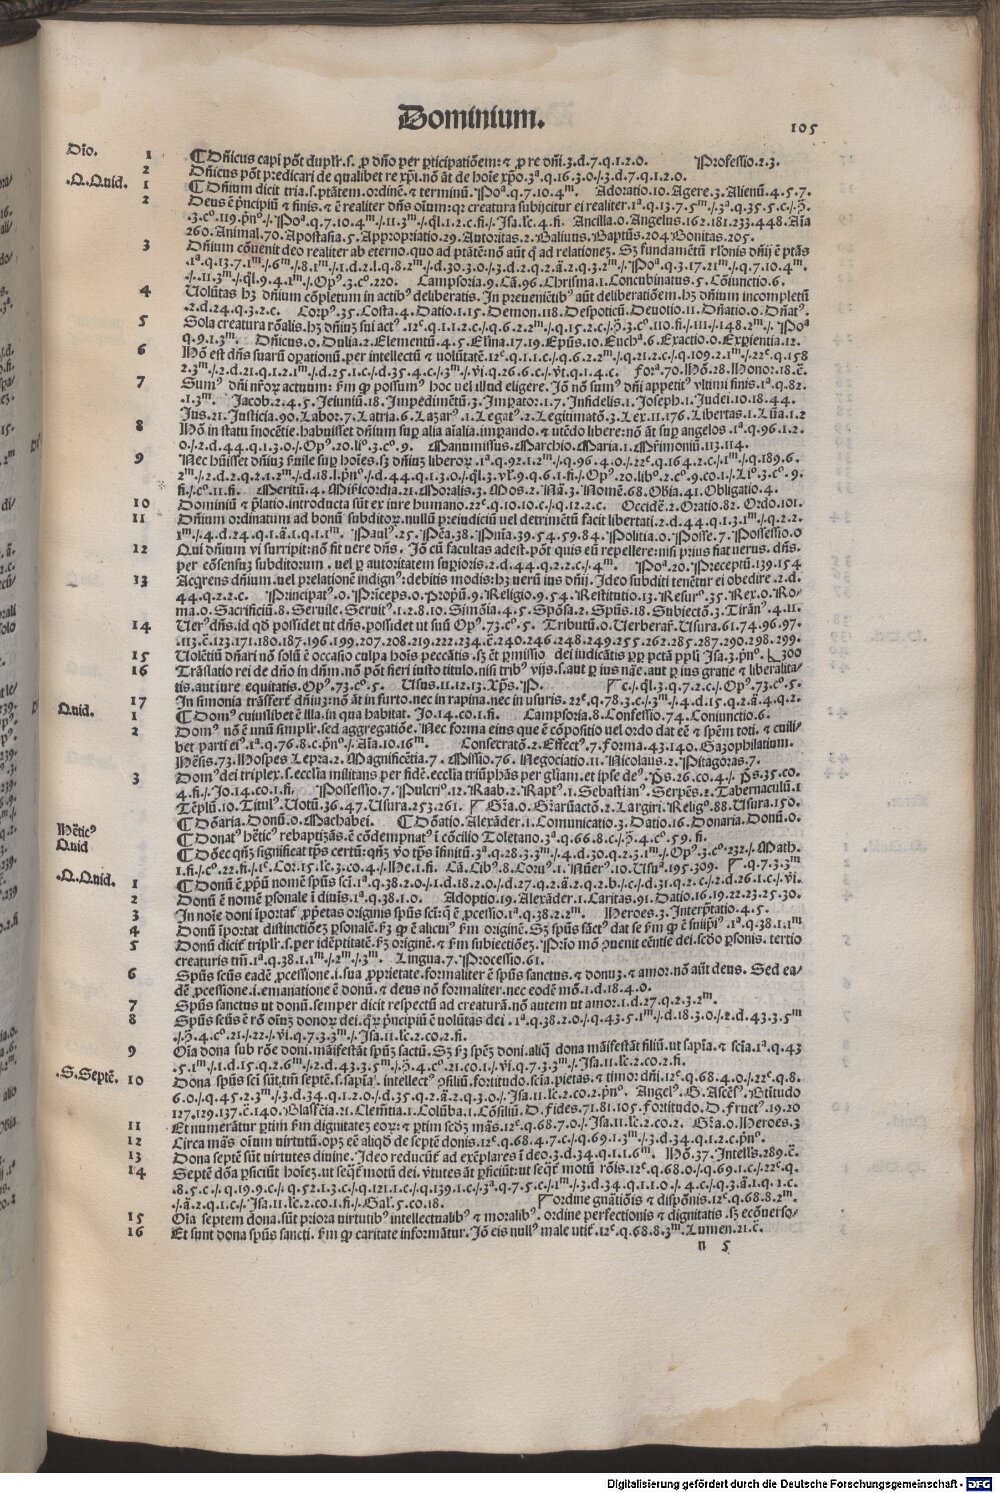 Dominium.
105
Dio. 1 ¶ Dñicus capi põt duplr̃.s. ꝓ dño per pticipatiõem: ⁊ ꝓ re dñi.3.d.7.q.1.2.o. Professio.2.3.
2 Dñicus põt predicari de qualibet re xp̃i. nõ ãt de hoĩe xp̃o.3ª.q.16.3.o./.3.d.7.q.1.2.o.
.Q.Quid. 1 ¶ Dñium dicit tria.s.ptãtem.ordinẽ.⁊ terminũ. Poª.q.7.10.4m. Adoratio.10. Agere.3. Alienũ.4.5.7.
2 Deus ẽ pⁱncipiũ ⁊ finis. ⁊ ẽ realiter dñs oĩum: qꝛ creatura subijcitur ei realiter.1ª.q.13.7.5m./.3ª.q.35.5.c./.ꝧ.
.3.co.119.pño./.Poª.q.7.10.4m./.11.3m./.ql̃.1.2.c.fi./.Isa.lc̃.4.fi. Ancilla.o. Angelus.162.181.233.448. Aĩa
260. Animal.70. Apostasia.5. Appropriatio.29. Autoritas.2. Baliuus. Baptũs.204. Bonitas.205.
3 Dñium cõuenit deo realiter ab eterno. quo ad ptãtẽ: nõ aũt qͣ ad relationeꝫ. Sꝫ fundamẽtũ rl̃onis dñij ẽ ptãs
.1ª.q.13.7.1m./.6m./.8.1m./.1.d.2.l.q.8.2m./.d.30.3.o./.3.d.2.q.2.ã.2.q.3.2m./.Poª.q.3.17.21m./.q.7.10.4m.
./.11.3m./.ql̃.9.4.1m./.Op⁹.3.co.220. Campsoria.9. Cã.96. Chrisma.1. Concubinatus.5. Cõiunctio.6.
4 Volũtas hꝫ dñium cõpletum in actib⁹ deliberatis. In preueniẽtib⁹ aũt deliberatiõem. hꝫ dñium incompletũ
.2.d.24.q.3.2.c. Corp⁹.35. Costa.4. Datio.1.15. Demon.118. Despoticũ. Deuotio.11. Dñatio.o. Dñat⁹.
5 Sola creatura rõalis. hꝫ dñiuꝫ sui act⁹.12e.q.1.1.2.c./.q.6.2.2m./.q.15.2.c./.ꝧ.3.co.110.fi./.111./.148.2m./.Poª
q.9.1.3m. Dñicus.o. Dulia.2. Elementũ.4.5. Elĩna.17.19. Epũs.10. Eucha.6. Exactio.o. Exꝑientia.12.
6 Hõ est dñs suarũ oꝑationũ. per intellectũ ⁊ volũtatẽ.12e.q.1.1.c./.q.6.2.2m./.q.21.2.c./.q.109.2.1m./.22e.q.158
2.3m./.2.d.21.q.1.2.1m./.d.25.1.c./.d.35.4.c./.3m./.vi.q.26.6.c./.vt.q.1.4.c. Forª.70. Hõ.28. Hono⁊.18.c̃.
7 Sum⁹ dñi nr̃oꝝ actuum: ẜm ꝙ possum⁹ hoc uel illud eligere. Iõ nõ sum⁹ dñi appetit⁹ vltimi finis.1ª.q.82.
.1.3m. Jacob.2.4.5. Jeiuniũ.18. Impedimẽtũ.3. Imꝑator.1.7. Infidelis.1. Joseph.1. Judei.10.18.44.
Jus.21. Justicia.90. Labo⁊.7. Latria.6. Lazar⁹.1. Legat⁹.2. Legitimatõ.3. Lex.11.176. Libertas.1. Lũa.1.2
8 Hõ in statu ĩnocẽtie. habuisset dñium suꝑ alia aĩalia. imꝑando. ⁊ utẽdo libere: nõ ãt suꝑ angelos.1ª.q.96.1.2.
o./.2.d.44.q.1.3.o./.Op⁹.20.lio.3.co.9. Manumissus. Marchio. Maria.1. Mr̃imoniũ.113.114.
9 Nec hũisset dñiuꝫ ẜuile suꝑ hoĩes. sꝫ dñiuꝫ liberoꝝ.1ª.q.92.1.2m./.q.96.4.o./.22e.q.164.2.c./.1m./.q.189.6.
2m./.2.d.2.q.2.1.2m./.d.18.l.pño./.d.44.q.1.3.o./.ql̃.3.vl̃.9.q.6.1.fi./.Op⁹.20.libo.2.co.9.co.1./.Lio.3.co.9.
fi./.co.11.fi. Meritũ.4. Miẜicordia.21. Moralis.3. Mos.2. Nã.3. Nomẽ.68. Obĩa.41. Obligatio.4.
10 Dominiũ ⁊ p̃latio. introducta sũt ex iure humano.22e.q.10.10.c./.q.12.2.c. Occidẽ.2. Oratio.82. Ordo.101.
11 Dñium ordinatum ad bonũ subditoꝝ. nullũ preiudiciũ uel detrimẽtũ facit libertati.2.d.44.q.1.3.1m./.q.2.2.
1m./.4.d.24.q.1.ã.1.q.1.1m. Paul⁹.25. Pc̃a.38. Pnĩa.39.54.59.84. Politia.o. Posse.7. Possessio.o
12 Qui dñium vi surripit: nõ fit uere dñs. Iõ cũ facultas adest. põt quis eũ repellere: nisi prius fiat uerus. dñs.
per cõsensuꝫ subditorum. uel ꝑ autoritatem suꝑioris.2.d.44.q.2.2.c./.4m. Poª.20. Preceptũ.139.154
13 Acqrens dñium. uel prelationẽ indign⁹: debitis modis: hꝫ uerũ ius dñij. Ideo subditi tenẽtur ei obedire.2.d.
44.q.2.2.c. Principat⁹.o. Pⁱnceps.o. Propũ.9. Religio.9.54. Restitutio.13. Resur⁹.35. Rex.o. Ro-
ma.o. Sacrificiũ.8. Seruile. Seruit⁹.1.2.8.10. Simõia.4.5. Spõsa.2. Spũs.18. Subiectõ.3. Tirãn⁹.4.11.
14 Uer⁹ dñs. id qd̃ possidet ut dñs. possidet ut suũ Op⁹.73.co.5. Tributũ.o. Uerberar̃. Usura.61.74.96.97.
113.c̃.123.171.180.187.196.199.207.208.219.222.234.c̃.240.246.248.249.255.262.285.287.290.298.299.
15 Uolẽtiũ dñari nõ solũ ẽ occasio culpa hoĩs peccãtis. sꝫ ẽt ꝑmissio dei iudicãtis ꝓꝑ pctã ppl̃i Isa.3.pño. ⌊300
16 Trãslatio rei de dño in dñm. nõ põt fieri iusto titulo. nisi trib⁹ vijs.s. aut ꝑ ius nãe. aut ꝑ ius gratie ⁊ liberalita-
tis. aut iure equitatis. Op⁹.73.co.5. Usus.11.12.13. Xp̃s.P. ⌈c./.ql̃.3.q.7.2.c./.Op⁹.73.co.5.
17 In simonia trãsfert̃ dñiuꝫ: nõ ãt in furto. nec in rapina. nec in usuris.22e.q.78.3.c./.3m./.4.d.15.q.2.ã.4.q.2.
Quid. 1 ¶ Dom⁹ cuiuslibet ẽ illa. in qua habitat. Jo.14.co.1.fi. Campsoria.8. Confessio.74. Coniunctio.6.
2 Dom⁹ nõ ẽ unũ simplr̃. sed aggregatiõe. Nec forma eius que ẽ cõpositio uel ordo dat eẽ ⁊ spẽm toti. ⁊ cuili-
bet parti ei⁹.1ª.q.76.8.c.pño./.Aĩa.10.16m. Consecratõ.2. Effect⁹.7. Forma.43.140. Gazophilatium.
Hẽsis.73. Hospes Lepra.2. Magnificẽtia.7. Missio.76. Negociatio.11. Nicolaus.2. Pitagoras.7.
3 Dom⁹ dei triplex.s. eccl̃ia militans per fidẽ. eccl̃ia triũphãs per gl̃iam. et ipse de⁹. Ps̃.26.co.4./.Ps̃.35.co.
4.fi./.Jo.14.co.1.fi. Possessio.7. Pulcrũ.12. Raab.2. Rapt⁹.1. Sebastian⁹. Serpẽs.2. Tabernaculũ.1
Tẽplũ.10. Titul⁹. Uotũ.36.47. Usura.253.261. ⌈ Gr̃a.o. Gr̃aruactõ.2. Largiri. Religⁱo.88. Usura.150.
¶ Dõaria. Donũ.o. Machabei. ¶ Dõatio. Alexãder.1. Comunicatio.3. Datio.16. Donaria. Donũ.o.
Hẽtic⁹ ¶ Donat⁹ hẽtic⁹ rebaptizãs. ẽ cõdempnat⁹ ĩ cõcilio Toletano.3ª.q.66.8.c./.ꝧ.4.co.59.fi.
Quid ¶ Dõec qñꝫ significat tp̃s certũ: qñꝫ ꝟo tp̃s ĩfinitũ.3ª.q.28.3.3m./.4.d.30.q.2.3.1m./.Op⁹.3.co.232./.Math.
1.fi./.co.22.fi./.1e.Coꝛ.15.lc̃.3.co.4./.He.1.fi. Cã. Cib⁹.8. Coru⁹.1. Nũer⁹.10. Usuª.195.309. ⌈.q.7.3.3m
.Q.Quid. 1 ¶ Donũ ẽ ꝓpⁱũ nomẽ spũs scĩ.1ª.q.38.2.o./.1.d.18.2.o./.d.27.q.2.ã.2.q.2.b./.c./.d.31.q.2.c./.2.d.26.1.c./.vi.
2 Donũ ẽ nomẽ ꝑsonale ĩ diuĩs.1ª.q.38.1.o. Adoptio.19. Alexãder.1. Caritas.91. Datio.16.19.22.23.25.30.
3 In noĩe doni ĩportat̃ ꝓpⁱetas originis spũs scĩ: q̃ ẽ ꝓcessio.1ª.q.38.2.2m. Heroes.3. Interp̃tatio.4.5.
4 Donũ ĩportat distinctiõeꝫ ꝑsonalẽ. ẜꝫ ꝙ ẽ alicui⁹ ẜm originẽ. Sꝫ spũs sãct⁹ dat se ẜm ꝙ ẽ suiip̃i⁹.1ª.q.38.1.1m
5 Donũ dicit̃ triplr̃.s. per idẽptitatẽ. ẜꝫ originẽ. ⁊ ẜm subiectiõeꝫ. Prio mõ ꝯuenit eẽntie dei. sc̃do ꝑsonis. tertio
creaturis tm̃.1ª.q.38.1.1m./.2m./.3m. Lingua.7. Processio.61.
6 Spũs scũs eadẽ ꝓcessione.i. sua ꝓprietate. formaliter ẽ spũs sanctus. ⁊ donuꝫ. ⁊ amor. nõ aũt deus. Sed ea-
dẽ ꝓcessione.i. emanatione ẽ donũ. ⁊ deus nõ formaliter. nec eodẽ mõ.1.d.18.4.o.
7 Spũs sanctus ut donũ. semper dicit respectũ ad creaturã. nõ autem ut amor.1.d.27.q.2.3.2m.
8 Spũs scũs ẽ rõ oĩnꝫ donoꝝ dei. qꝛ pⁱncipiũ ẽ volũtas dei.1ª.q.38.2.o./.q.43.5.1m./.d.18.3.o./.2.d.43.3.5m
./.ꝧ.4.co.21./.22./.vi.q.7.3.3m./.Isa.11.lc̃.2.co.2.fi.
9 Oĩa dona sub rõe doni. mãifestãt spũꝫ sactũ. Sꝫ ẜꝫ spẽꝫ doni. aliq̃ dona mãifestãt filiũ. ut sapĩa. ⁊ scĩa.1ª.q.43
.5.1m./.1.d.15.q.2.6m./.2.d.43.3.5m./.ꝧ.4.co.21.co.1./.vi.q.7.3.3m./.Isa.11.lc̃.2.co.2.fi.
.S.Septẽ. 10 Dona spũs scĩ sũt. tm̃ septẽ.s. sapĩa. intellect⁹ ꝯsiliũ. fortitudo. scĩa. pietas. ⁊ timor dñi.12e.q.68.4.o./.22e.q.8.
6.o./.q.45.2.3m./.3.d.34.q.1.2.o./.d.35.q.2.ã.2.q.3.o./.Isa.11.lc̃.2.co.2.pño. Angel⁹.G. Ascẽs⁹. Btĩtudo
127.129.137.c̃.140. Blasfẽia.21. Clemẽtia.1. Colũba.1. Cõsiliũ.D. Fides.71.81.105. Fortitudo.D. Fruct⁹.19.20
11 Et numerãtur ꝑtim ẜm dignitateꝫ eoꝝ: ⁊ ꝑtim scd̃ꝫ mãs.12e.q.68.7.o./.Isa.11.lc̃.2.co.2. Gr̃a.o. Heroes.3
12 Circa mãs oĩum uirtutũ. opꝫ eẽ aliqd̃ de septẽ donis.12e.q.68.4.7.c./.q.69.1.3m./.3.d.34.q.1.2.c.pño.
13 Dona septẽ sũt virtutes divine. Ideo reducũt̃ ad exẽplares ĩ deo.3.d.34.q.1.1.6m. Hõ.37. Intell̃s.289.c̃.
14 Septẽ dõa ꝑficiũt hoĩeꝫ. ut seqt̃ motũ dei. v̓tutes ãt ꝑficiũt: ut seqt̃ motũ rõis.12e.q.68.o./.q.69.1.c./.22e.q.
.8.5.c./.q.19.9.c./.q.52.1.3.c./.q.121.1.c./.q.139.1.c./.3ª.q.7.5.c./.1m./.3.d.34.q.1.1.o./.4.c./.q.3.ã.1.q.1.c.
./.ã.2.q.1.c./.Isa.11.lc̃.2.co.1.fi./.Gal̃.5.co.18. ⌈ordine gnãtiõis ⁊ dispõnis.12e.q.68.8.2m.
15 Oĩa septem dona. sũt priora uirtutib⁹ intellectualib⁹ ⁊ moralib⁹. ordine perfectionis ⁊ dignitatis. sꝫ ecõuerso⁄
16 Et sunt dona spũs sancti. ẜm ꝙ caritate informãtur. Iõ eis null⁹ male utit̃.12e.q.68.8.3m. Lumen.21.c̃.
n 5
Digitalisierung gefördert durch die Deutsche Forschungsgemeinschaft - DFG